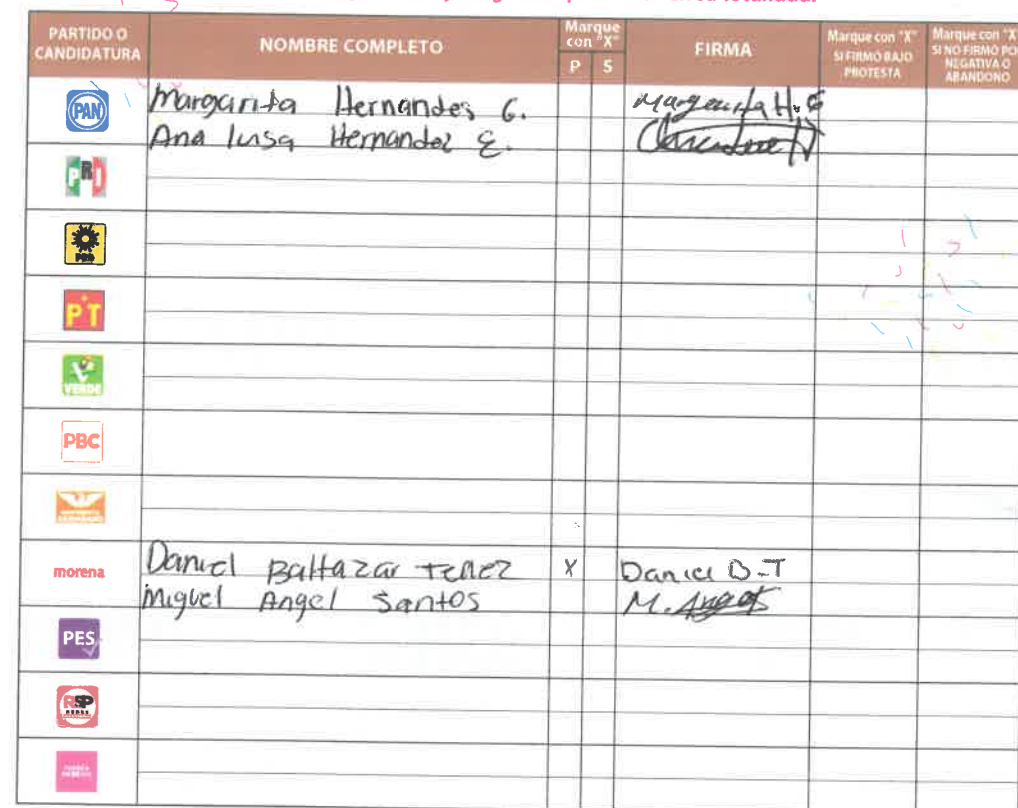 PARTIDO O CANDIDATURA
NOMBRE COMPLETO
Marque con "X"
P S
FIRMA
Marque con "X" SI FIRMÓ BAJO PROTESTA
Marque con "X" SI NO FIRMÓ POR NEGATIVA O ABANDONO
PAN Margarita Hernandes G. Margarita H. G
Ana lusa Hernandez E.
PRI
PRD
PT
VERDE
PBC
morena Daniel Baltazar Tellez X Daniel B-T
Miguel Angel Santos M. Angel
PES
RSP